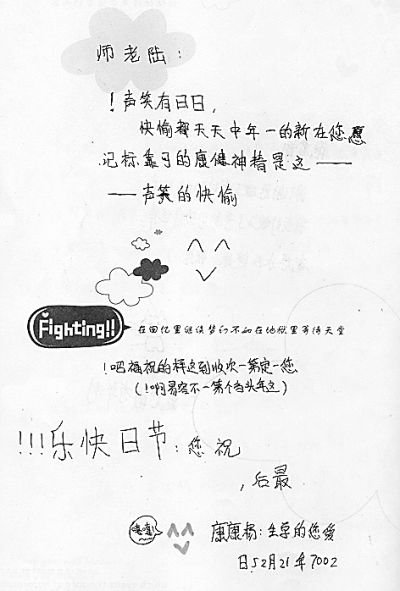 师老陆:
!声笑有日日,
快愉都天天中年一的新在您愿
记标靠可的康健神精是这——
——声笑的快愉
Fighting!! 在回忆里继续梦幻不如在地狱里等待天堂
!吧福祝的样这到收次一第定一您
(!啊易容不一第个当头年这)
!!!乐快日节:您祝
,后最
嘻嘻
康康杨:生学的您爱
日52月21年7002